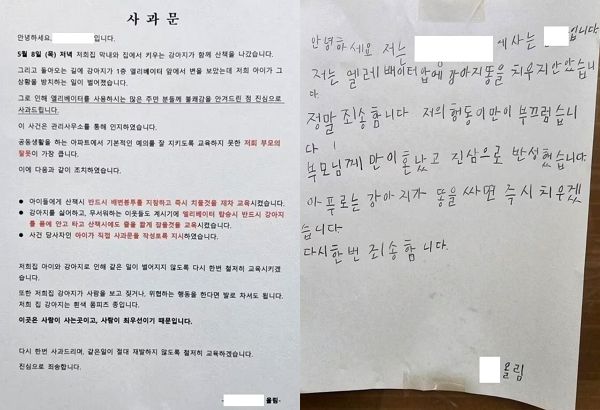 사 과 문
안녕하세요,
입니다.
5월 8일 (목) 저녁 저희집 막내와 집에서 키우는 강아지가 함께 산책을 나갔습니다.
그리고 돌아오는 길에 강아지가 1층 엘리베이터 앞에서 변을 보았는데 저희 아이가 그
상황을 방치하는 일이 벌어졌습니다.
그로 인해 엘리베이터를 사용하시는 많은 주민 분들께 불쾌감을 안겨드린 점 진심으로
사과드립니다.
이 사건은 관리사무소를 통해 인지하였습니다.
공동생활을 하는 아파트에서 기본적인 예의를 잘 지키도록 교육하지 못한 저희 부모의
잘못이 가장 큽니다.
이에 다음과 같이 조치하였습니다.
● 아이들에게 산책시 반드시 배변봉투를 지참하고 즉시 치울것을 재차 교육시켰습니다.
● 강아지를 싫어하고, 무서워하는 이웃들도 계시기에 엘리베이터 탑승시 반드시 강아지
를 품에 안고 타고 산책시에도 줄을 짧게 잡을것을 교육시켰습니다.
● 사건 당사자인 아이가 직접 사과문을 작성토록 지시하였습니다.
저희집 아이와 강아지로 인해 같은 일이 벌어지지 않도록 다시 한번 철저히 교육시키겠
습니다.
또한 저희집 강아지가 사람을 보고 짖거나, 위협하는 행동을 한다면 발로 차셔도 됩니다.
저희 집 강아지는 흰색 폼피츠 종입니다.
이곳은 사람이 사는곳이고, 사람이 최우선이기 때문입니다.
다시 한번 사과드리며, 같은일이 절대 재발하지 않도록 철저히 교육하겠습니다.
진심으로 죄송합니다.
올림-
안녕하세요 저는
에사는
입니다
저는 엘레베이터앞에 강아지똥을 치우지안았습니
다
정말 죄송합니다 저의 행동이만이 부끄럽습니
다
부모님께 만이혼났고 진심으로 반성했습니다.
아푸로는 강아지가 똥을 싸면 즉시 치우겠
습니다.
다시한번 죄송합니다.
올림